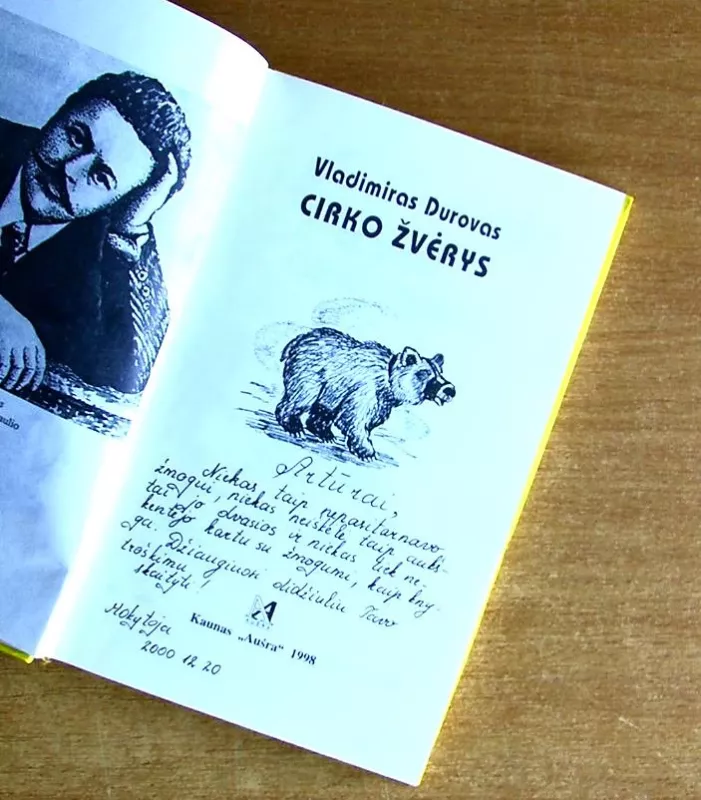 aulio
Vladimiras Durovas
CIRKO ŽVĖRYS
Artūrai,
Niekas taip nepasitarnavo
žmogui, niekas neiškėlė taip aukš-
tai jo dvasios ir niekas tiek ne-
kentėjo kartu su žmogumi, kaip kny-
ga. Džiaugiuosi didžiuliu Tavo
troškimu
skaityti!
Mokytoja
2000 12 20
A
Kaunas „Aušra“ 1998